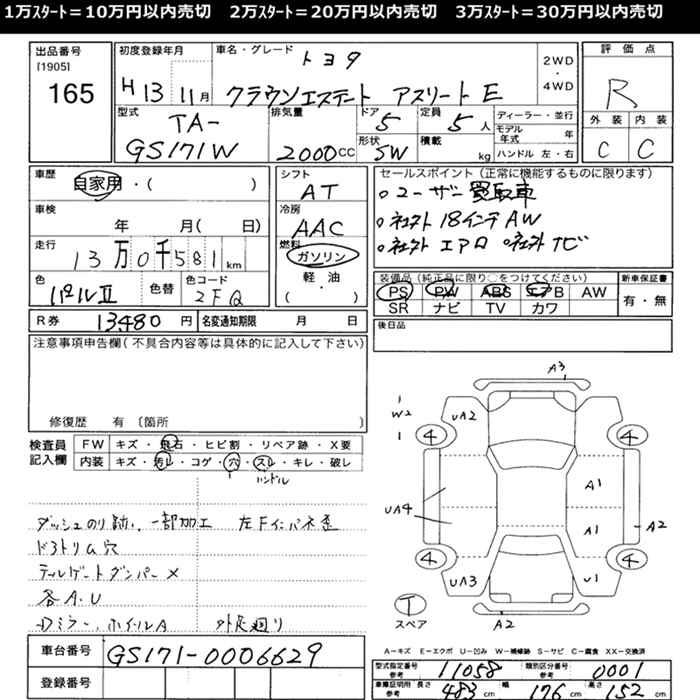 1万ｽﾀｰﾄ＝10万円以内売切 2万ｽﾀｰﾄ＝20万円以内売切 3万ｽﾀｰﾄ＝30万円以内売切
出品番号
[1905]
165
初度登録年月
H13 11月
車名・グレード
トヨタ
クラウンエステート アスリートE
2WD
・
4WD
評価点
R
外装 内装
C C
型式
TA-
GS171W
排気量
2000CC
ドア
5
形状
SW
定員
5人
積載
kg
ディーラー・並行
モデル年式 年
ハンドル 左・右
車歴
自家用・( )
車検
年 月( 日)
走行
13万0千581km
色
パールⅡ
色替
色コード
2FQ
シフト
AT
冷房
AAC
燃料
ガソリン
軽・油
( ・ )
セールスポイント (正常に機能するものに限ります)
○ユーザー買取車
○社外18インチAW
○社外エアロ ○社外ナビ
装備品(純正品に限り○をつけてください)
PS PW ABS エアB AW
SR ナビ TV カワ
新車保証書
有・無
R券 13480円
名変通知期限 月 日
後日品
注意事項申告欄(不具合内容等は具体的に記入して下さい)
修復歴 有 〔箇所 〕
検査員記入欄
FW キズ・飛石・ヒビ割・リペア跡・X要
内装 キズ・汚レ・コゲ・穴・スレ・キレ・破レ
ハンドル
ダッシュのり跡、一部加工 左Fインパネ歪
ドアトリム穴
テールゲートダンパー×
各A.U
Dミラー、ホイールA 外足廻り
A3
W2
UA2
4
4
A1
UA4
A1
A2
4
4
UA3
U1
T
スペア
A2
A－キズ E－エクボ U－凹み W－補修跡 S－サビ C－腐食 XX－交換済
車台番号
GS171-0006629
登録番号
型式指定番号
参考
11058
類別区分番号
参考
0001
車庫証明用
参考
長さ 483cm 幅 176cm 高さ 152cm